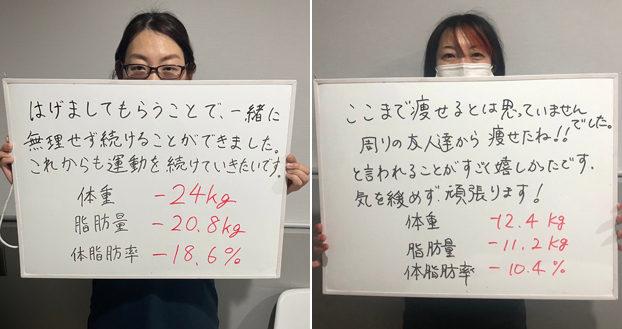 はげましてもらうことで、一緒に
無理せず続けることができました。
これからも運動を続けていきたいです。
体重 -24kg
脂肪量 -20.8kg
体脂肪率 -18.6%
ここまで痩せるとは思っていません
でした。
周りの友人達から痩せたね!!
と言われることがすごく嬉しかったです。
気を緩めず頑張ります!
体重 -12.4kg
脂肪量 -11.2kg
体脂肪率 -10.4%